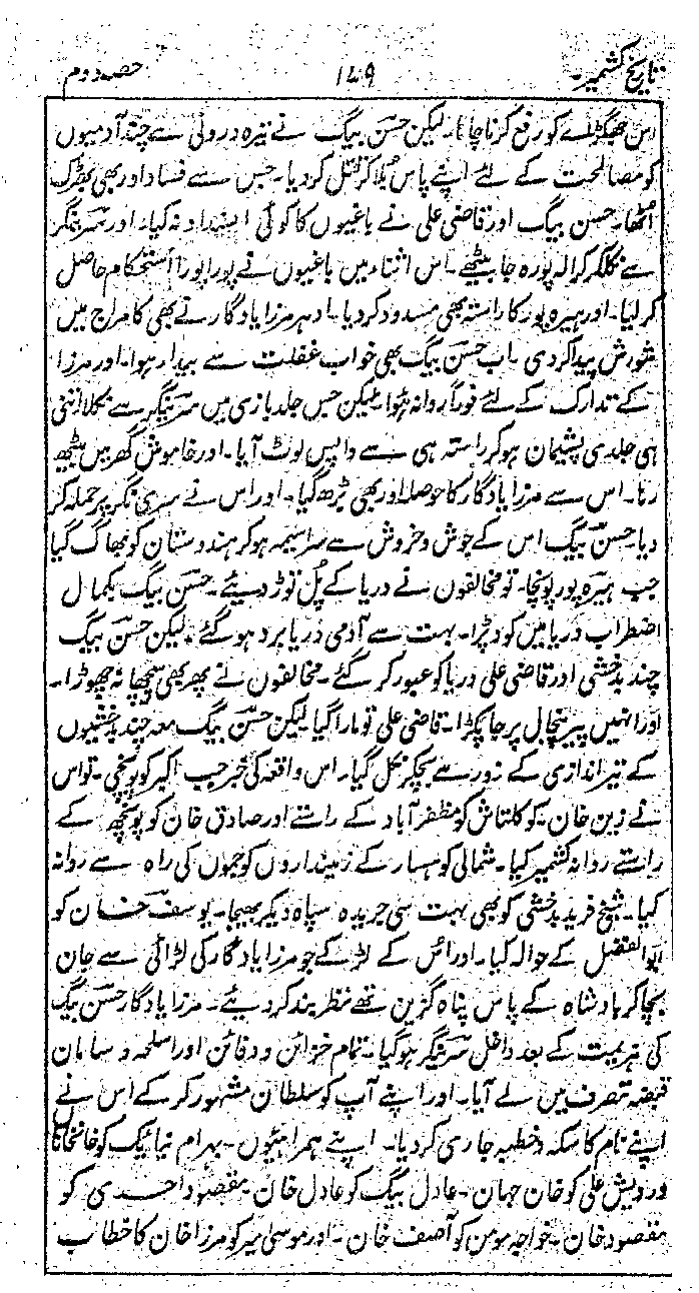 تاریخ کشمیر۔ ۱۴۹ حصہ دوم
اس جھگڑے کو رفع کرنا چاہا۔ لیکن حسن بیگ نے تیرہ درونی سے چند آدمیوں
کو مصالحت کے لئے اپنے پاس بلا کر قتل کر دیا۔ جس سے فساد اور بھی بھڑک
اُٹھا۔ حسن بیگ اور قاضی علی نے باغیوں کا کوئی انسداد نہ کیا۔ اور سرینگر
سے نکلکر کرالہ پورہ جا بیٹھے۔ اس اثناء میں باغیوں نے پورا پورا استحکام حاصل
کر لیا۔ اور ہیرہ پور کا راستہ بھی مسدود کر دیا۔ ادہر مرزا یادگار نے بھی کامراج میں
شورش پیدا کر دی۔ اب حسن بیگ بھی خواب غفلت سے بیدار ہوا۔ اور مرزا
کے تدارک کے لئے فوراً روانہ ہؤا۔ لیکن جس جلد بازی میں سرینگر سے نکلا اتنی
ہی جلدی پشیمان ہو کر راستہ ہی سے واپس لوٹ آیا۔ اور خاموش گھر میں بیٹھ
رہا۔ اس سے مرزا یادگار کا حوصلہ اور بھی بڑھ گیا۔ اور اس نے سری نگر پر حملہ کر
دیا۔ حسن بیگ اس کے جوش و خروش سے سراسیمہ ہو کر ہندوستان کو بھاگ گیا
جب ہیرہ پور پہنچا۔ تو مخالفوں نے دریا کے پُل توڑ دیئے۔ حسن بیگ بکمال
اضطراب دریا میں کود پڑا۔ بہت سے آدمی دریا برد ہو گئے۔ لیکن حسن بیگ
چند بدخشی اور قاضی علی دریا کو عبور کر گئے۔ مخالفوں نے پھر بھی پیچھا نہ چھوڑا۔
اور انہیں پیر پنچال پر جا پکڑا۔ قاضی علی تو مارا گیا لیکن حسن بیگ معہ چند بدخشیوں
کے تیر اندازی کے زور سے بچکر نکل گیا۔ اس واقعہ کی خبر جب اکبر کو پہنچی۔ تو اس
نے زین خان۔ کوکلتاش کو مظفر آباد کے راستے اور صادق خان کو پونچھ کے
راستے روانہ کشمیر کیا۔ شمالی کوہسار کے زمینداروں کو جموں کی راہ سے روانہ
کیا۔ شیخ فرید بخشی کو بھی بہت سی جریدہ سپاہ دیکر بھیجا۔ یوسف خان کو
ابوالفضل کے حوالہ کیا۔ اور اس کے لڑکے جو مرزا یادگار کی لڑائی سے جان
بچا کر بادشاہ کے پاس پناہ گزین تھے نظر بند کر دیئے۔ مرزا یادگار حسن بیگ
کی ہزیمت کے بعد داخل سرینگر ہو گیا۔ تمام خزائن و دفائن اور اسلحہ و سامان
قبضہ تصرف میں لے آیا۔ اور اپنے آپ کو سلطان مشہور کر کے اس نے
اپنے نام کا سکہ و خطبہ جاری کر دیا۔ اپنے ہمراہیوں۔ بہرام نیا بیگ کو خانخاناں
درویش علی کو خان جہان۔ عادل بیگ کو عادل خان۔ مقصود احدی کو
مقصود خان۔ خواجہ مومن کو آصف خان۔ اور موسیٰ میر کو مرزا خان کا خطاب